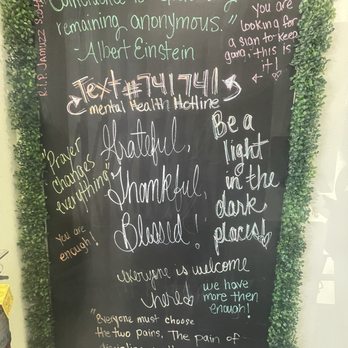 remaining anonymous."
-Albert Einstein
you are
looking for
a sign to keep
going, this is
it!
Text #741741
mental Health Hotline
Grateful,
Thankful,
Blessed!
Be a
light
in the
dark
places!
"Prayer
changes
everything"
You are
enough!
everyone is welcome
here
we have
more then
enough!
"Everyone must choose
the two pains. The pain of